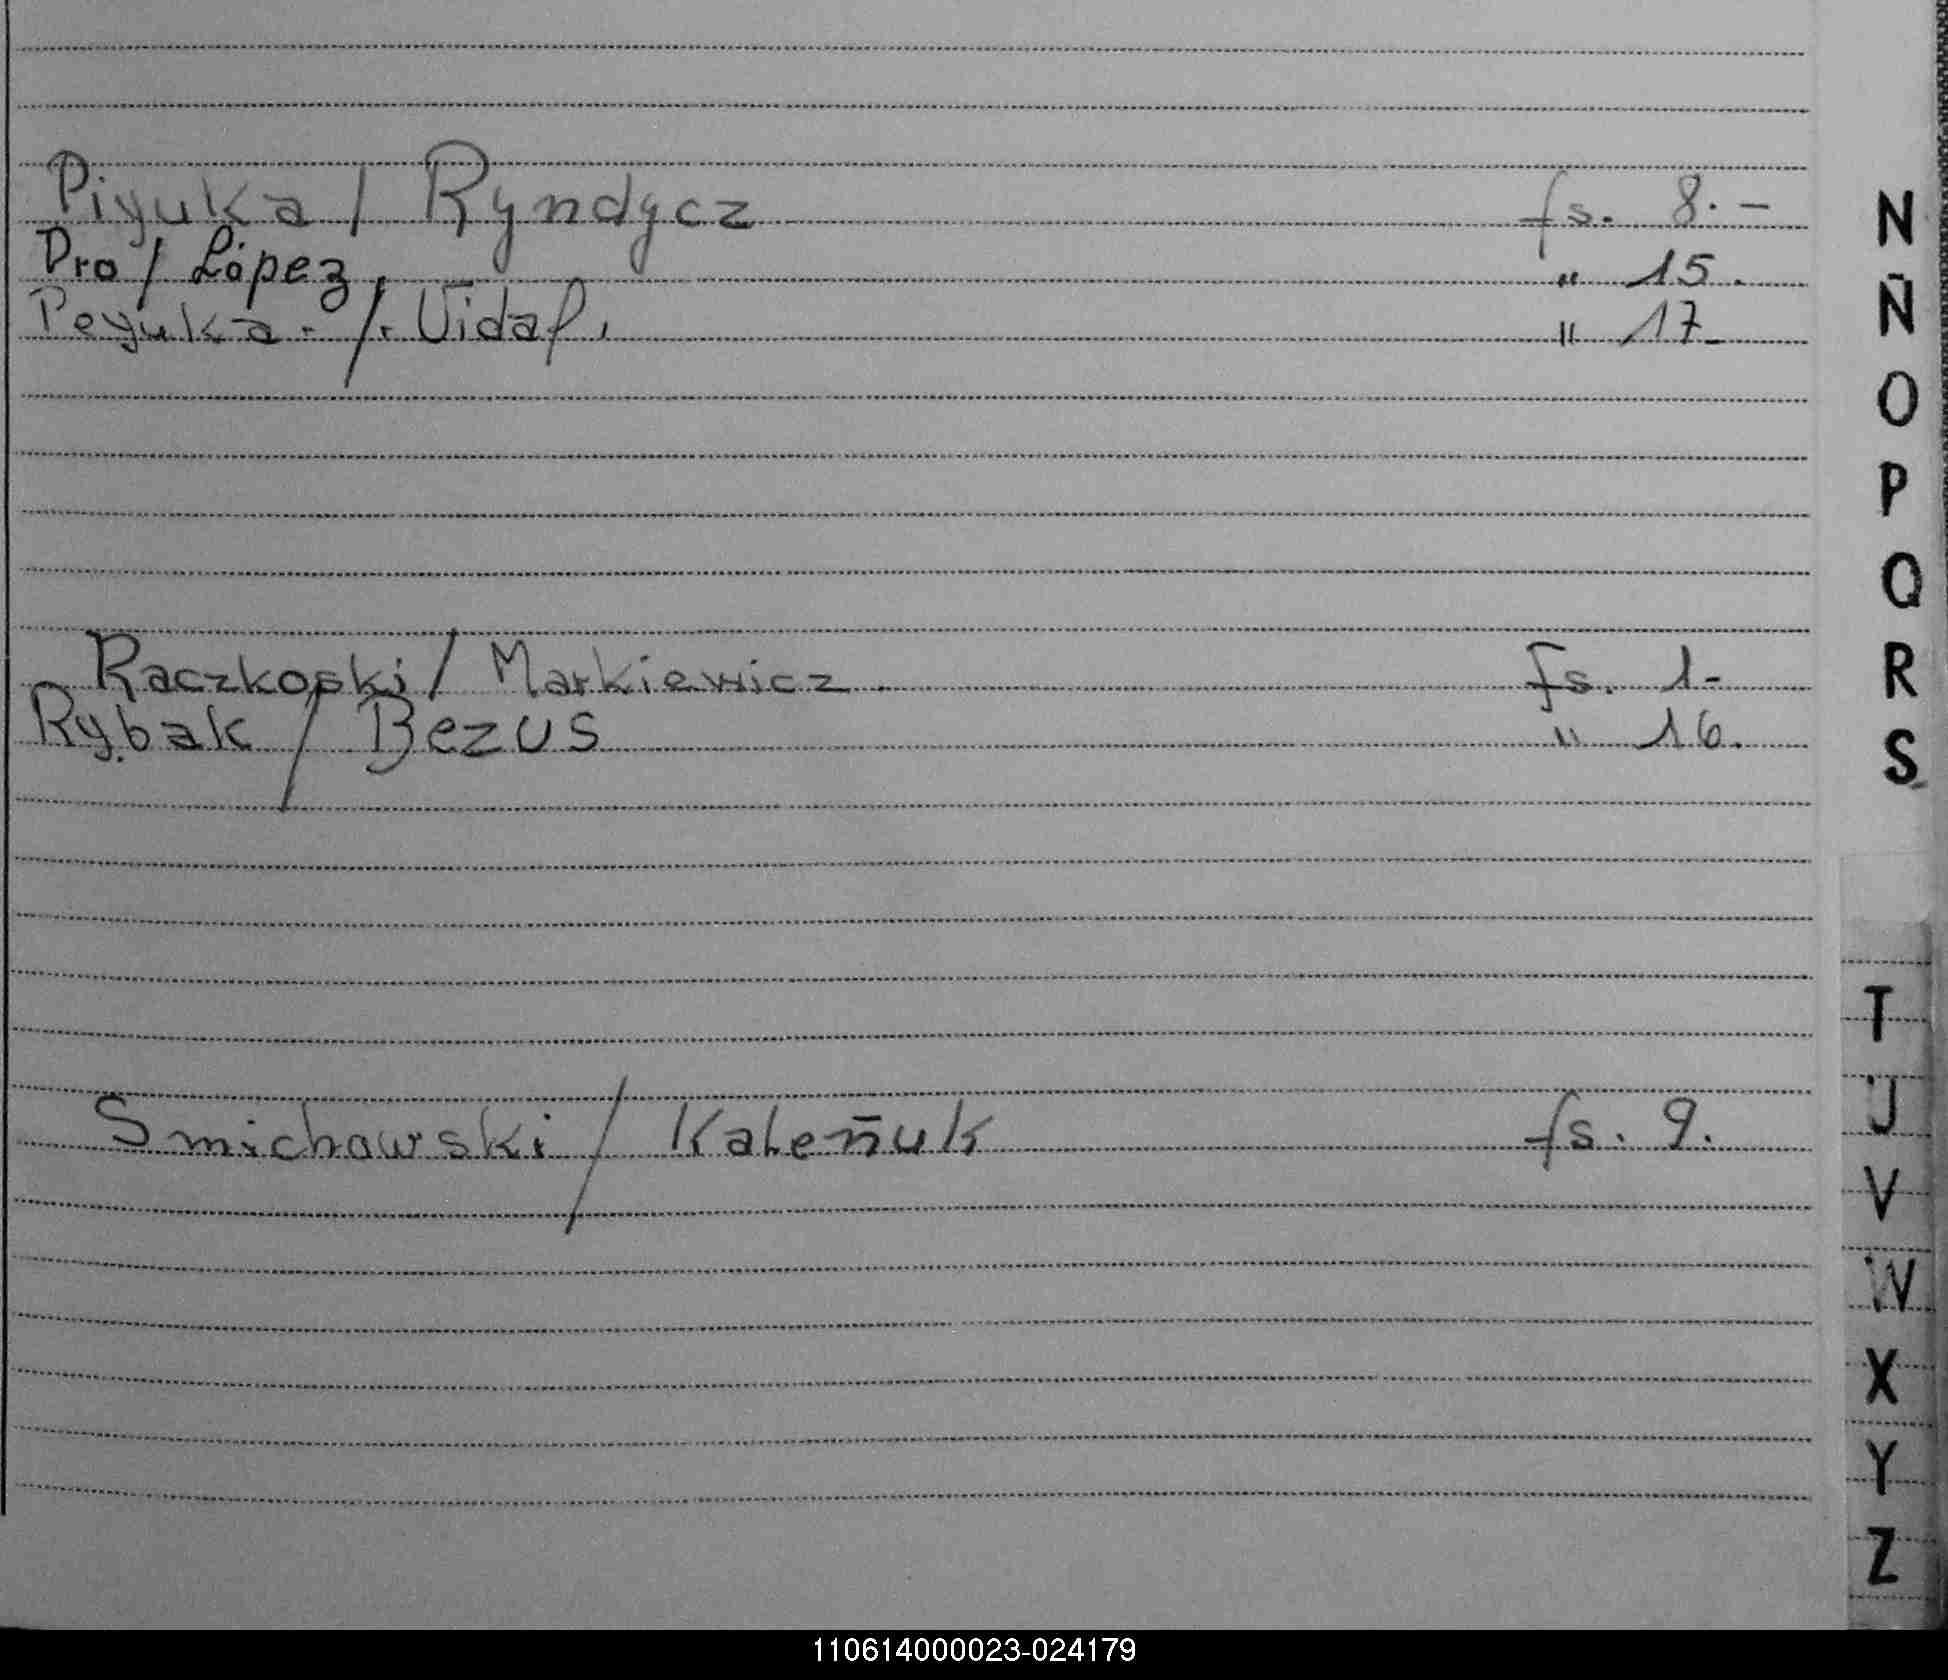 Piyuka / Ryndycz fs. 8.-
Pro / López. " 15.
Peyuka. /. Vidal. " 17.
Raczkoski / Markiewicz. fs. 1-
Rybak / Bezus " 16.
Smichowski / Kaleñuk fs. 9.
N
Ñ
O
P
Q
R
S
T
U
V
W
X
Y
Z
110614000023-024179